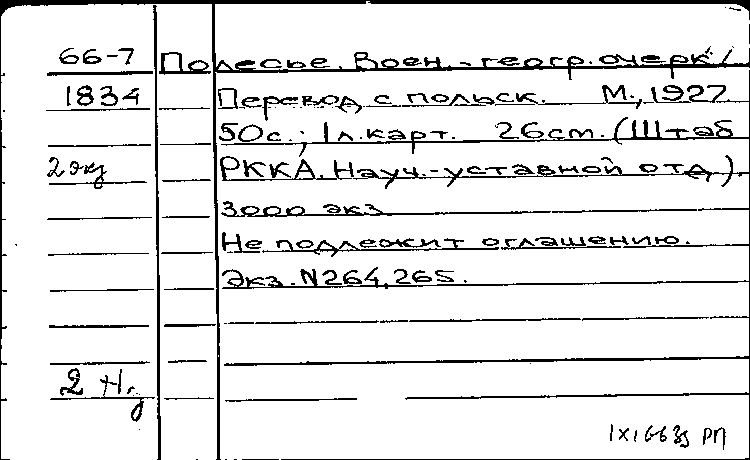 66-7 Полесье. Воен.-геогр. очерк /
1834 Перевод с польск. М., 1927
50с.; 1л.карт. 26см. (Штаб
2 экз РККА. Науч.-уставной отд.).
3000 экз.
Не подлежит оглашению.
Экз. N264,265.
2 Н.
РП